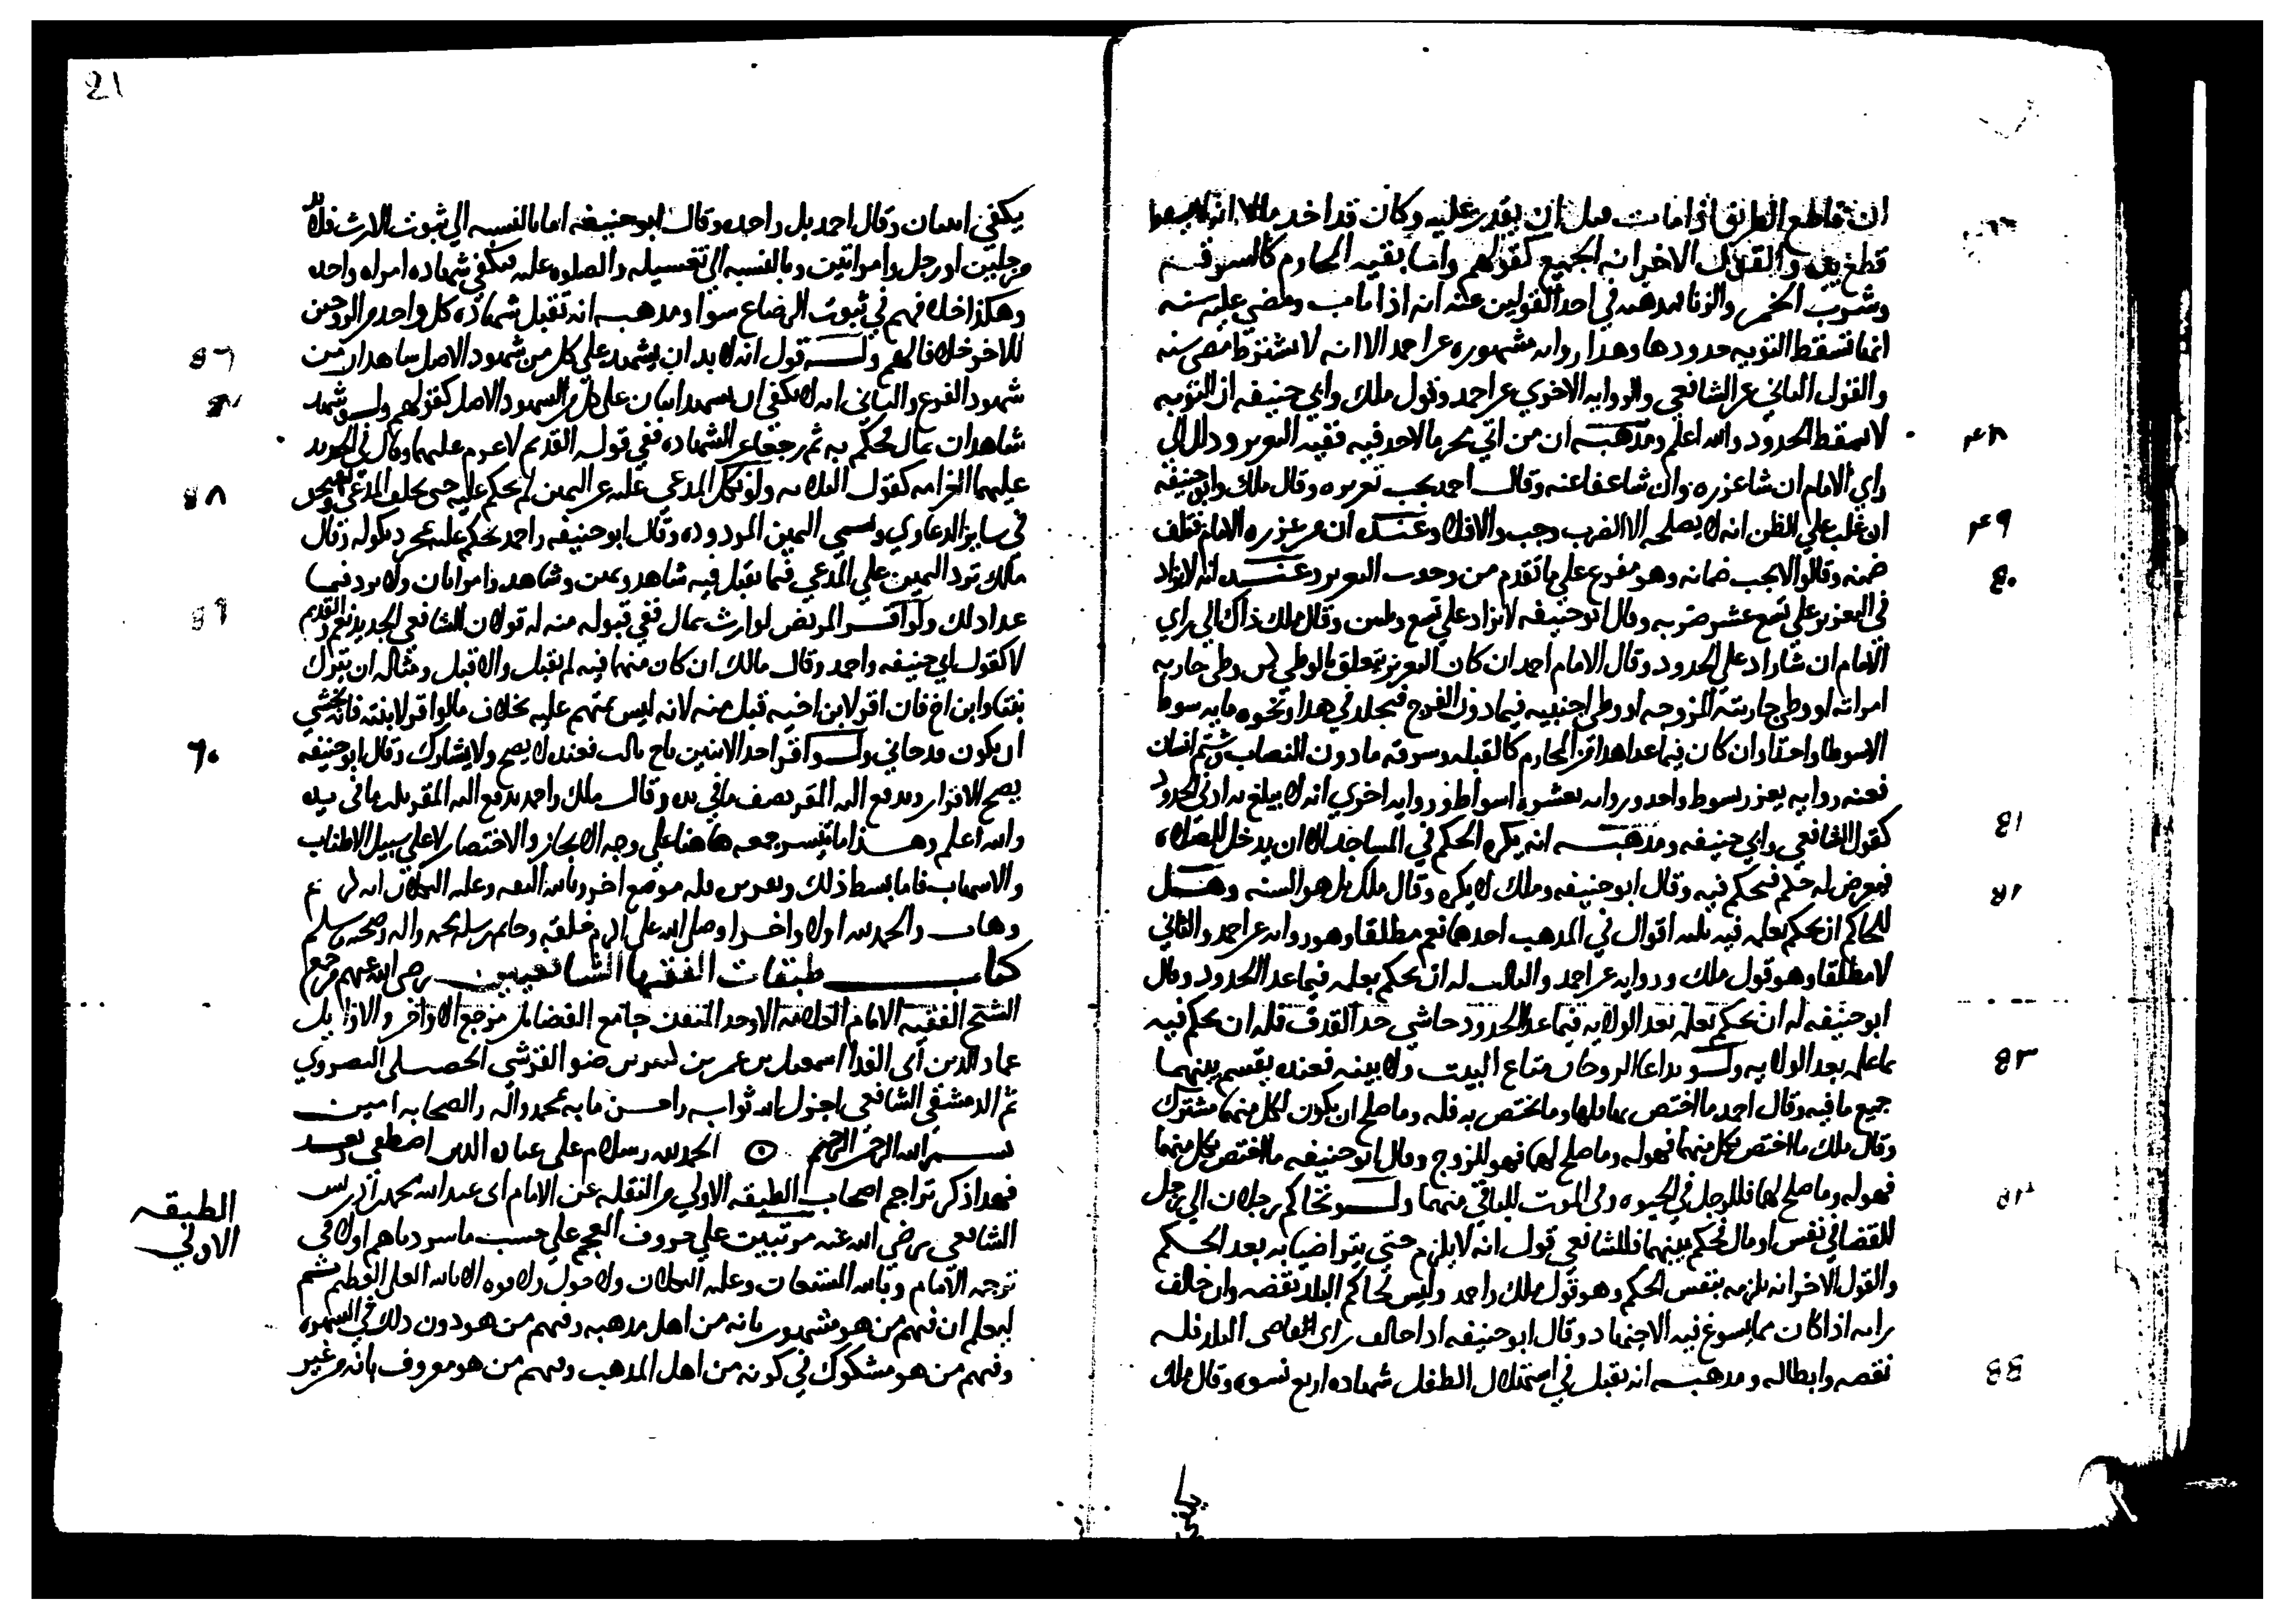 ان قاطع الطريق اذا مات قبل ان يقدر عليه وكان قد اخذ مالا انه لا يسقط
قطع يده والقول الاخر انه الجميع كقولهم واما بقيه المحارم كالسرقه
وشرب الخمر والزنا فمذهبه في احد القولين عنه انه اذا تاب ومضي عليه سنه
انها تسقط التوبه حدودها وهذا روايه مشهوره عن احمد الا انه لا يشترط مضي سنه
٤٨
والقول الثاني عن الشافعي والروايه الاخري عن احمد وقول ملك وابي حنيفه ان التوبه
لا تسقط الحدود والله اعلم ومذهبه ان من اتي محرما لا حد فيه ففيه التعزير وذلك الي
راي الامام ان شا عزره وان شا عفا عنه وقال احمد يجب تعزيره وقال ملك وابو حنيفه
٤٩
ان غلب علي الظن انه لا يصلحه الا الضرب وجب والا فلا وعنده ان من عزره الامام فتلف
٥٠
ضمنه وقالوا لا يجب ضمانه وهو مفرع علي ما تقدم من وجوب التعزير وعنده انه لا يزاد
في التعزير علي تسع عشر ضربه وقال ابو حنيفه لا يزاد علي تسع وثلثين وقال ملك ذاك الي راي
الامام ان شا زاد علي الحدود وقال الامام احمد ان كان التعزير يتعلق بالوطي كمن وطي جاريه
امراته او وطي جاريته المزوجه او وطي اجنبيه فيما دون الفرج فيجلد في هذا ونحوه مايه سوط
الا سوطا واحدا وان كان فيما عدا هذا من المحارم كالقبله وسرقه ما دون النصاب وشتم انسان
فعنه روايه يعزر بسوط واحد وروايه بعشره اسواط وروايه اخري انه لا يبلغ به ادني الحدود
٥١
كقول الشافعي وابي حنيفه ومذهبه انه يكره الحكم في المساجد الا ان يدخل للصلاه
٥٢
فيعرض له حكم فيحكم فيه وقال ابو حنيفه وملك لا يكره وقال ملك بل هو السنه وهل
للحاكم ان يحكم بعلمه فيه ثلثه اقوال في المذهب احدها نعم مطلقا وهو روايه عن احمد والثاني
لا مطلقا وهو قول ملك وروايه عن احمد والثالث له ان يحكم بعلمه فيما عدا الحدود وقال
ابو حنيفه له ان يحكم بعلمه بعد الولايه فيما عدا الحدود حاشي حد القذف فله ان يحكم فيه
٥٣
بما علمه بعد الولايه ولو تداعا الزوجان متاع البيت ولا بينه فعنده يقسم بينهما
جميع ما فيه وقال احمد ما اختص بها فلها وما يختص به فله وما صلح ان يكون لكل منهما مشترك
وقال ملك ما اختص بكل منهما فهو له وما صلح لهما فهو للزوج وقال ابو حنيفه ما اختص بكل منهما
٥٤
فهو له وما صلح لهما فللرجل في الحيوه وفي الموت للباقي منهما ولو تحاكم رجلان الي رجل
للقضا في نفس او مال فحكم بينهما فللشافعي قول انه لا يلزم حتي يتراضيا به بعد الحكم
والقول الاخر انه يلزم بنفس الحكم وهو قول ملك واحمد وليس لحاكم البلد نقضه وان خالف
رايه اذا كان مما يسوغ فيه الاجتهاد وقال ابو حنيفه اذا خالف راي القاضي البلد فله
٥٥
نقضه وابطاله ومذهبه انه تقبل في استهلال الطفل شهاده اربع نسوه وقال ملك
21
يكفي اثنتان وقال احمد بل واحده وقال ابو حنيفه اما بالنسبه الي ثبوت الارث فلا بد
من رجلين او رجل وامراتين وبالنسبه الي تغسيله والصلوه عليه فيكفي شهاده امراه واحده
وهكذا خلافهم في ثبوت الرضاع سوا ومذهبه انه تقبل شهاده كل واحد من الزوجين
٥٦
للاخر خلافا لهم وله قول انه لا بد ان يشهد علي كل من شهود الاصل شاهدان من
٥٧
شهود الفرع والثاني انه يكفي ان يشهد اثنان علي كل من الشهود الاصل كقولهم ولو شهد
شاهدان بمال فحكم به ثم رجعا عن الشهاده ففي قوله القديم لا غرم عليهما وقال في الجديد
٥٨
عليهما الغرامه كقول الثلاثه ولو نكل المدعي عليه عن اليمين لم يحكم عليه حتي يحلف المدعي
في ساير الدعاوي وتسمي اليمين المردوده وقال ابو حنيفه واحمد يحكم عليه بمجرد نكوله وقال
ملك ترد اليمين علي المدعي فيما يقبل فيه شاهد ويمين وشاهد وامراتان ولا يرد فيما
٥٩
عدا ذلك ولو اقر المريض لوارث بمال ففي قبوله منه له قولان للشافعي الجديد نعم والقديم
لا كقول ابي حنيفه واحمد وقال مالك ان كان متهما فيه لم تقبل والا قبل ومثاله ان يترك
بنتا وابن اخ فان اقر لابن اخيه قبل منه لانه ليس يتهم عليه بخلاف ما لو اقر لابنته فانه يخشي
٦٠
ان يكون قد حابي ولو اقر احد الابنين باخ ثالث فعنده لا يصح ولا يشارك وقال ابو حنيفه
يصح الاقرار ويدفع اليه المقر نصف ما في يده وقال ملك واحمد يدفع اليه المقر ثلث ما في يده
والله اعلم وهذا ما تيسر جمعه هاهنا علي وجه الايجاز والاختصار لا علي سبيل الاطناب
والاسهاب فاما بسط ذلك وتعريره فله موضع اخر وبالله الثقه وعليه التكلان انه كريم
وهاب والحمد لله اولا واخرا وصلي الله علي اكرم خلقه وخاتم رسله محمد واله وصحبه وسلم
كتاب طبقات الفقها الشافعيين رضي الله عنهم جمع
الشيخ الفقيه الامام العلامه الاوحد المتفنن جامع الفضايل مرجع الاواخر والاوايل
عماد الدين ابي الفدا اسمعيل بن عمر بن كثير بن ضو القرشي الحصلي البصروي
ثم الدمشقي الشافعي اجزل الله ثوابه واحسن مابه بمحمد واله والصحابه امين
بسم الله الرحمن الرحيم الحمد لله وسلام علي عباده الذين اصطفي وبعد
الطبقه الاولي
فهذا ذكر تراجم اصحاب الطبقه الاولي من النقله عن الامام ابي عبد الله محمد بن ادريس
الشافعي رضي الله عنه مرتبين علي حروف المعجم علي حسب ما سردناهم اولا في
ترجمه الامام وبالله المستعان وعليه التكلان ولا حول ولا قوه الا بالله العلي العظيم ثم
ليعلم ان فيهم من هو مشهور بانه من اهل مذهبه وفيهم من هو دون ذلك في الشهره
وفيهم من هو مشكوك في كونه من اهل المذهب وفيهم من هو معروف بانه من غير